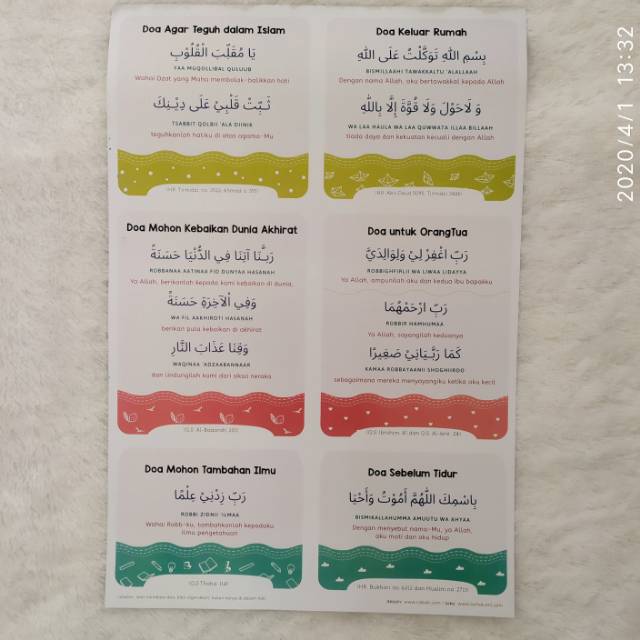 Doa Agar Teguh dalam Islam
يَا مُقَلِّبَ الْقُلُوْبِ
YAA MUQOLLIBAL QULUUB
Wahai Dzat yang Maha membolak-balikkan hati
ثَبِّتْ قَلْبِيْ عَلَى دِيْنِكَ
TSABBIT QOLBII 'ALA DIINIK
teguhkanlah hatiku di atas agama-Mu
Doa Keluar Rumah
بِسْمِ اللهِ تَوَكَّلْتُ عَلَى اللهِ
BISMILLAAHI TAWAKKALTU 'ALALLAAH
Dengan nama Allah, aku bertawakkal kepada Allah
وَ لَاحَوْلَ وَلَا قُوَّةَ إِلَّا بِاللهِ
WA LAA HAULA WA LAA QUWWATA ILLAA BILLAAH
tiada daya dan kekuatan kecuali dengan Allah
Doa Mohon Kebaikan Dunia Akhirat
رَبَّنَا آتِنَا فِي الدُّنْيَا حَسَنَةً
ROBBANAA AATINAA FID DUNYAA HASANAH
Ya Allah, berikanlah kepada kami kebaikan di dunia,
وَفِي اْلآخِرَةِ حَسَنَةً
WA FIL AAKHIROTI HASANAH
berikan pula kebaikan di akhirat
وَقِنَا عَذَابَ النَّارِ
WAQINAA 'ADZAABANNAAR
dan lindungilah kami dari siksa neraka
Doa untuk OrangTua
رَبِّ اغْفِرْ لِيْ وَلِوَالِدَيَّ
ROBBIGHFIRLII WA LIWAA LIDAYYA
Ya Allah, ampunilah aku dan kedua ibu bapakku
رَبِّ ارْحَمْهُمَا
ROBBIR HAMHUMAA
Ya Allah, sayangilah keduanya
كَمَا رَبَّيَانِيْ صَغِيْرًا
KAMAA ROBBAYAANII SHOGHIIROO
sebagaimana mereka menyayangiku ketika aku kecil
Doa Mohon Tambahan Ilmu
رَبِّ زِدْنِيْ عِلْمًا
ROBBI ZIDNII 'ILMAA
Wahai Robb-ku, tambahkanlah kepadaku
ilmu pengetahuan
Doa Sebelum Tidur
بِاسْمِكَ اللّٰهُمَّ أَمُوْتُ وَأَحْيَا
BISMIKALLAHUMMA AMUUTU WA AHYAA
Dengan menyebut nama-Mu, ya Allah,
aku mati dan aku hidup
2020/4/1 13:32